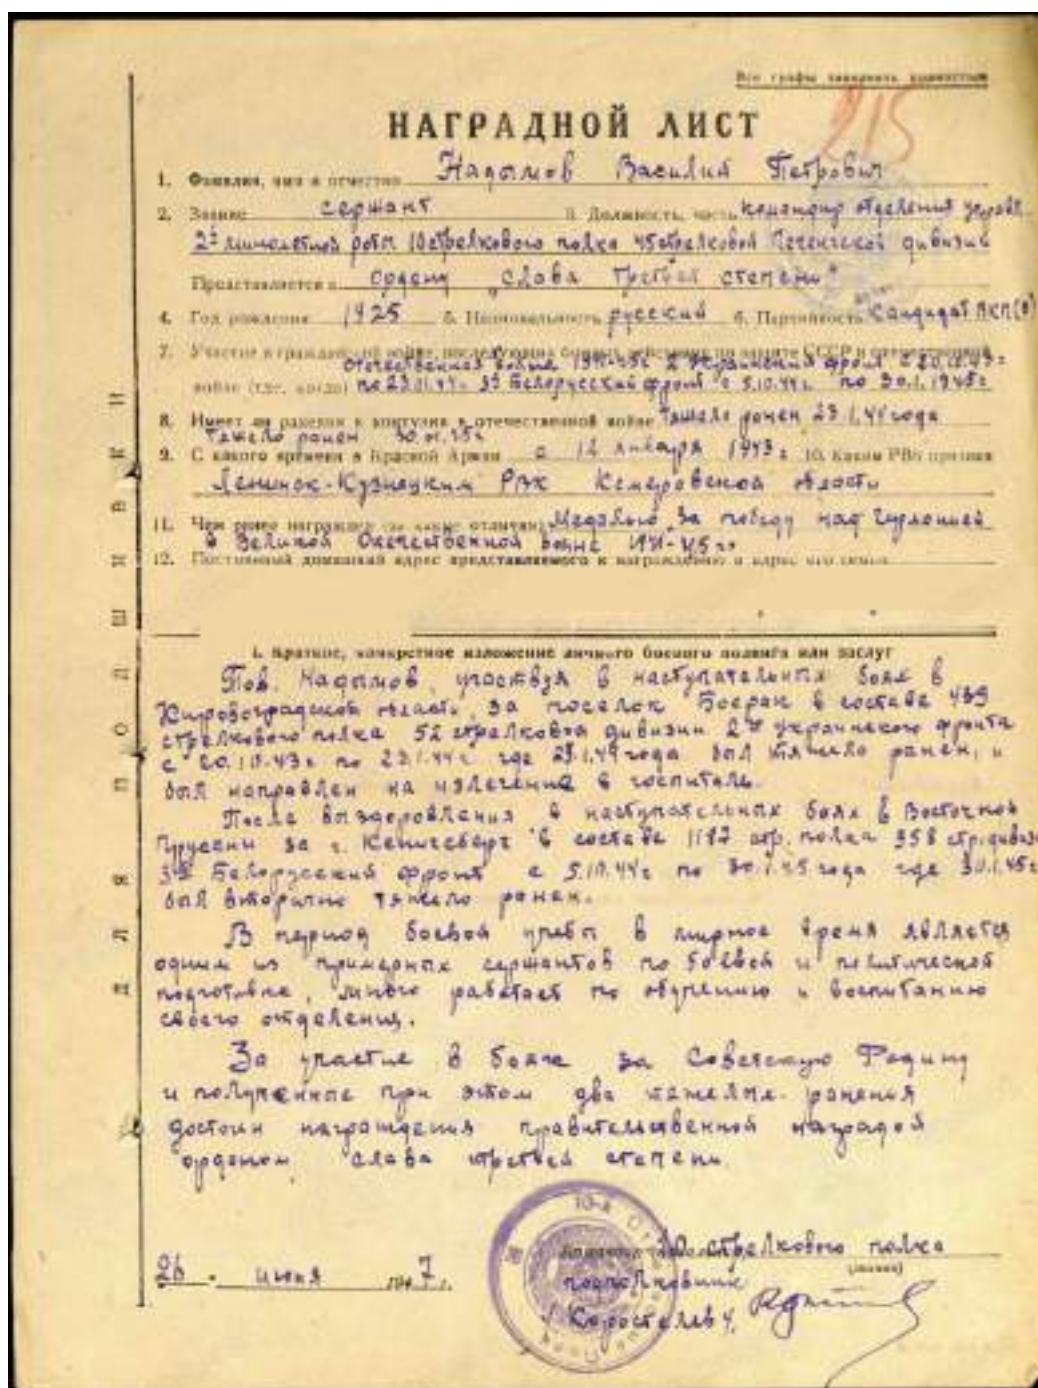 Все графы заполнять полностью
215
НАГРАДНОЙ ЛИСТ
1. Фамилия, имя и отчество Надымов Василий Петрович
2. Звание сержант 3. Должность, часть командир отделения управл.
2й минометной роты 10 стрелкового полка 45 стрелковой Печенгской дивизии
Представляется к ордену "Слава третьей степени"
4. Год рождения 1925 5. Национальность русский 6. Партийность Кандидат ВКП(б)
7. Участие в гражданской войне, последующих боевых действиях по защите СССР и отечественной
Отечественная война 1941-45г. 2 Украинский фронт с 20.10.43г
войне (где, когда) по 23.01.44г. 3й Белорусский фронт с 5.10.44г. по 30.1.1945г
8. Имеет ли ранения и контузии в отечественной войне Тяжело ранен 23.1.44 года
Тяжело ранен 30.01.45г
9. С какого времени в Красной Армии с 12 января 1943г 10. Каким РВК призван
Ленинск-Кузнецким РВК Кемеровской области
11. Чем ранее награжден (за какие отличия) Медалью "За победу над Германией
в Великой Отечественной войне 1941-45г"
12. Постоянный домашний адрес представляемого к награждению и адрес его семьи
1. Краткое, конкретное изложение личного боевого подвига или заслуг
Тов. Надымов, участвуя в наступательных боях в
Кировоградской области, за поселок Боерак в составе 439
стрелкового полка 52 стрелковой дивизии 2го Украинского фронта
с 20.10.43г по 23.1.44г. где 23.1.44 года был тяжело ранен, и
был направлен на излечение в госпиталь.
После выздоровления в наступательных боях в Восточной
Пруссии за г. Кенигсберг в составе 1187 стр. полка 358 стр. дивиз
3й Белорусский фронт с 5.10.44г по 30.1.45 года где 30.1.45г
был вторично тяжело ранен.
В период боевой учебы в мирное время является
одним из примерных сержантов по боевой и политической
подготовке, много работает по обучению и воспитанию
своего отделения.
За участие в боях за Советскую Родину
и полученные при этом два тяжелых ранения
достоин награждения правительственной наградой
орденом "Слава третьей степени".
26 - июня 1947 г.
Командир 10 стрелкового полка
(звание)
подполковник
/Коростелев/
ДЛЯ ПОДШИВКИ